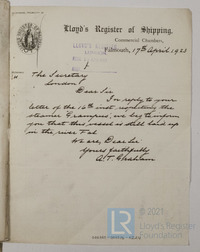 Lloyd's Register of Shipping,
Commercial Chambers,
Falmouth, 17th April 1923
LLOYD'S
The Secretary
London
Dear Sir
In reply to your
letter of the 16th inst. regarding the
steamer Grampus, we beg to inform
you that this vessel is still laid up
in the river Fal
We are, Dear Sir
Yours faithfully
© 2021
LR
Lloyd's Register
Foundation